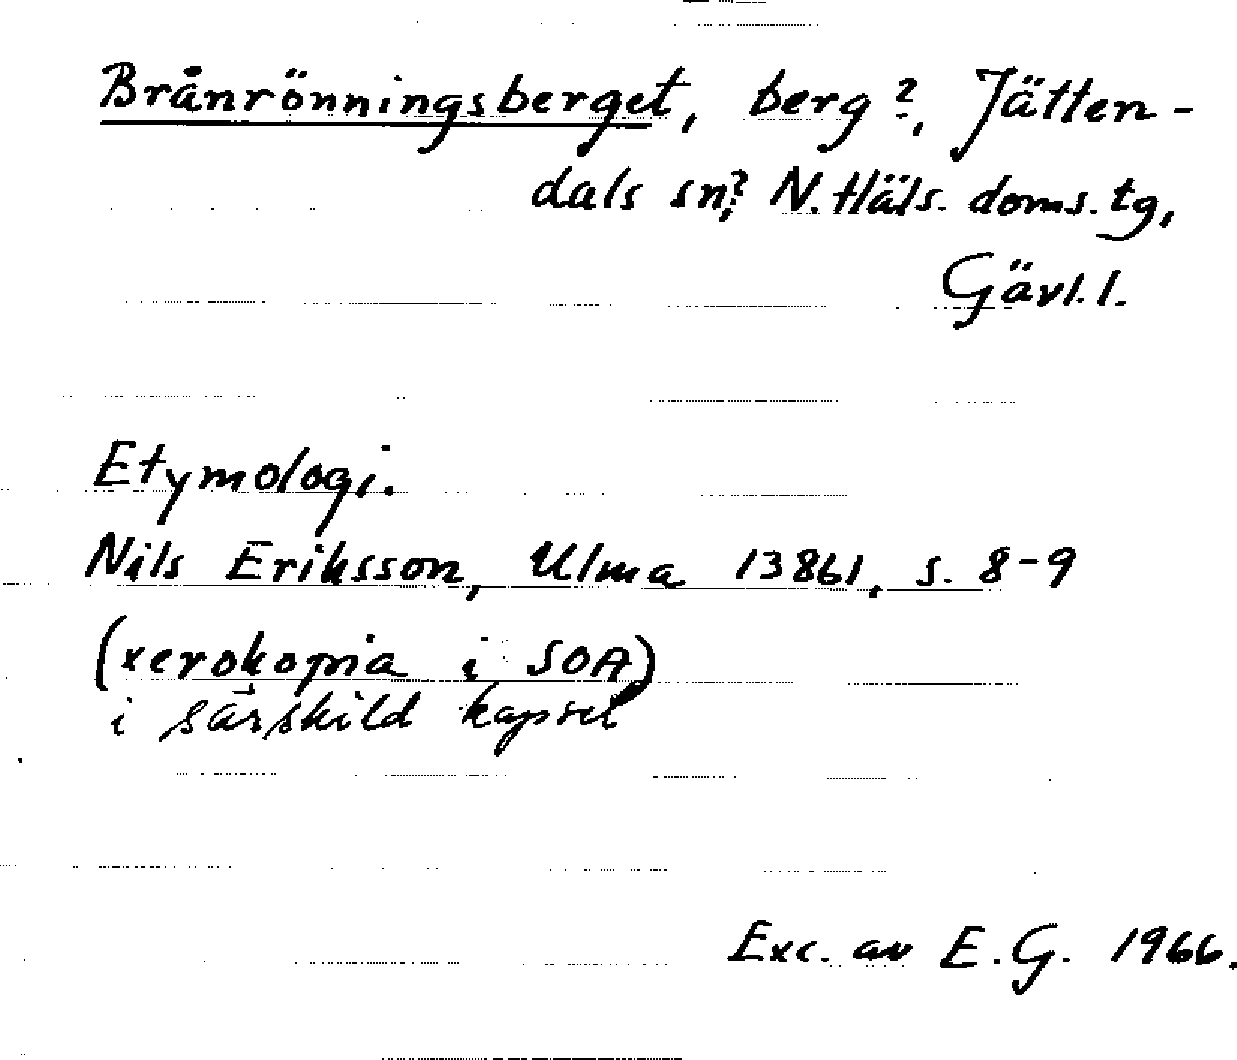 Brånrönningsberget, berg?, Jätten-
dals sn? N. Häls. doms. tg,
Gävl. l.
Etymologi.
Nils Eriksson, Ulma 13861, s. 8-9
(xerokopia i SOA)
i särskild kapsel
Exc. av E.G. 1966.